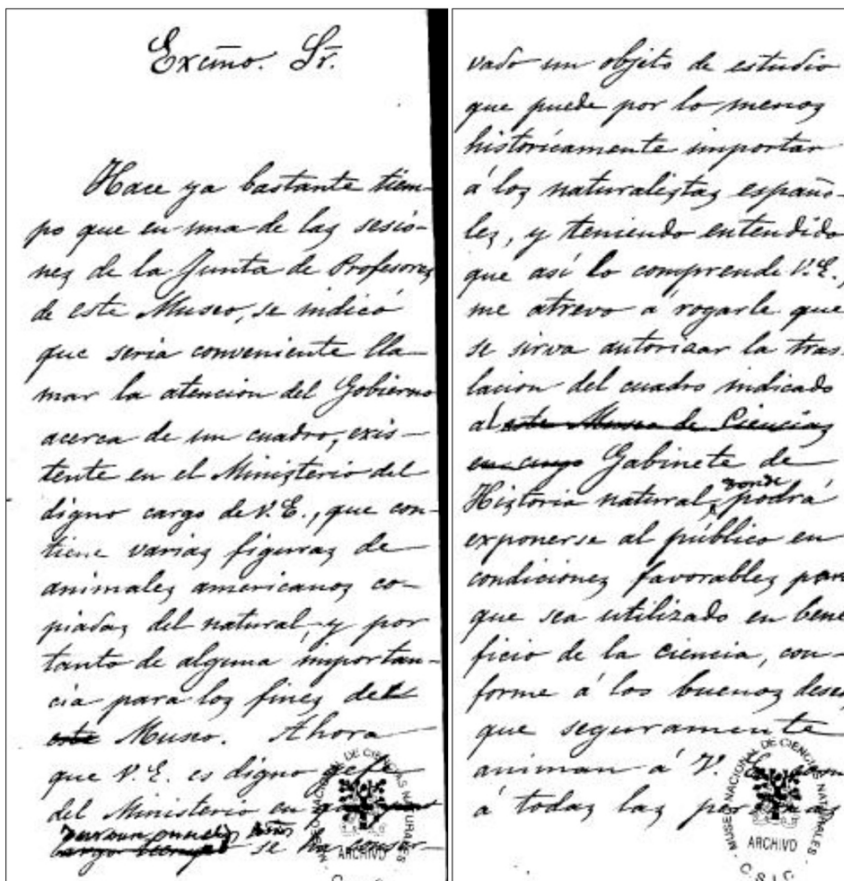 Excmo. Sr.
Hace ya bastante tiem-
po que en una de las sesio-
nes de la Junta de Profesores
de este Museo, se indicó
que seria conveniente lla-
mar la atencion del Gobierno
acerca de un cuadro, exis-
tente en el Ministerio del
digno cargo de V. E., que con-
tiene varias figuras de
animales americanos co-
piadas del natural, y por
tanto de alguna importan-
cia para los fines del
este Museo. Ahora
que V. E. es digno gefe
del Ministerio en
durante muchos años
largo tiempo se ha conser-
vado un objeto de estudio
que puede por lo menos
históricamente importar
á los naturalistas españo-
les, y teniendo entendido
que así lo comprende V. E.,
me atrevo á rogarle que
se sirva autorizar la tras-
lacion del cuadro indicado
al este Museo de Ciencias
en cuyo Gabinete de
Historia natural, donde podrá
exponerse al público en
condiciones favorables para
que sea utilizado en bene
ficio de la ciencia, con-
forme á los buenos deseos
que seguramente
animan á V. E. como
á todas las personas
MUSEO NACIONAL DE CIENCIAS NATURALES
ARCHIVO
C.S.I.C.
MUSEO NACIONAL DE CIENCIAS NATURALES
ARCHIVO
C.S.I.C.